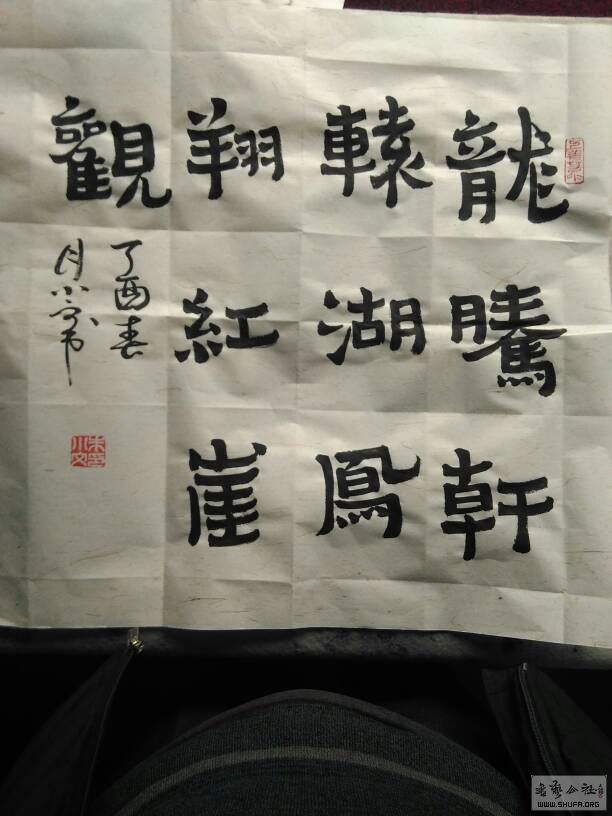 龍騰軒
轅湖鳳
翔紅崖
觀
丁酉春
月小文书
朱印小文
WWW.SHUFA.ORG